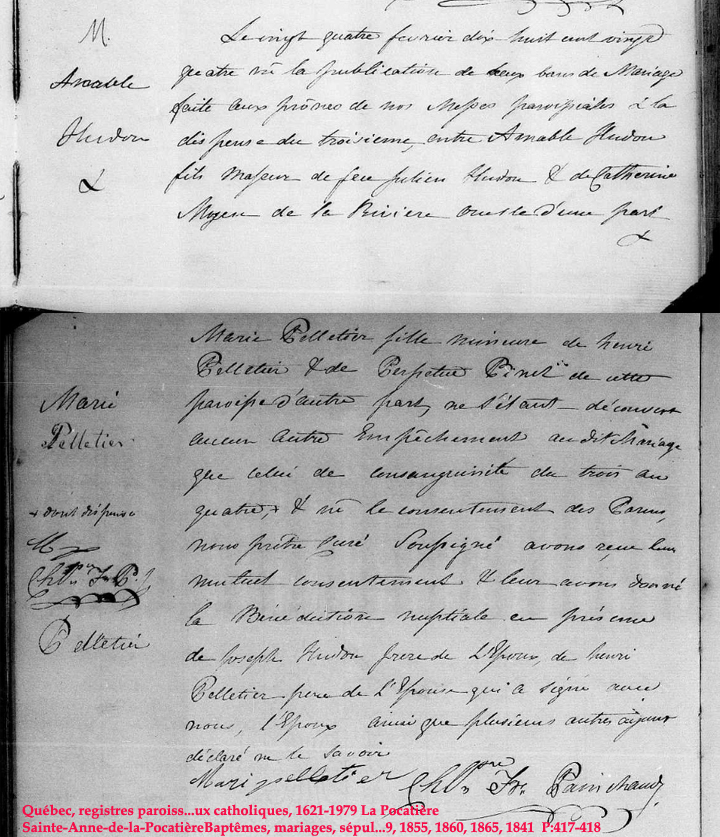 M.
Amable
Hudon
&
Le vingt quatre fevrier dix huit cent vingt
quatre vû la publication de deux bans de Mariage
faite aux prônes de nos Messes paroissiales & la
dispense du troisieme, entre Amable Hudon
fils Majeur de feu Julien Hudon & de Catherine
Miyeu de la Riviere ouelle d'une part
&
Marie
Pelletier
+ dont dispense
M
Chs Frs P.
Pelletier
Marie Pelletier fille mineure de henri
Pelletier & de Perpetue Pinet de cette
paroisse d'autre part, ne s'étant découvert
aucun autre Empêchement au dit Mariage
que celui de consanguinité du trois au
quatre, + & vû le consentement des Parens,
nous prêtre Curé Soussigné avons reçu leur
mutuel consentement & leur avons donné
la Bénédiction nuptiale en présence
de Joseph Hudon frere de L'Epoux, de henri
Pelletier pere de L'Epouse qui a signé avec
nous, l'Epoux ainsi que plusieurs autres ayant
déclaré ne le savoir
Mari pelletier Chs Frs Painchaud ptre
Québec, registres paroiss...ux catholiques, 1621-1979 La Pocatière
Sainte-Anne-de-la-PocatièreBaptêmes, mariages, sépul...9, 1855, 1860, 1865, 1841 P:417-418